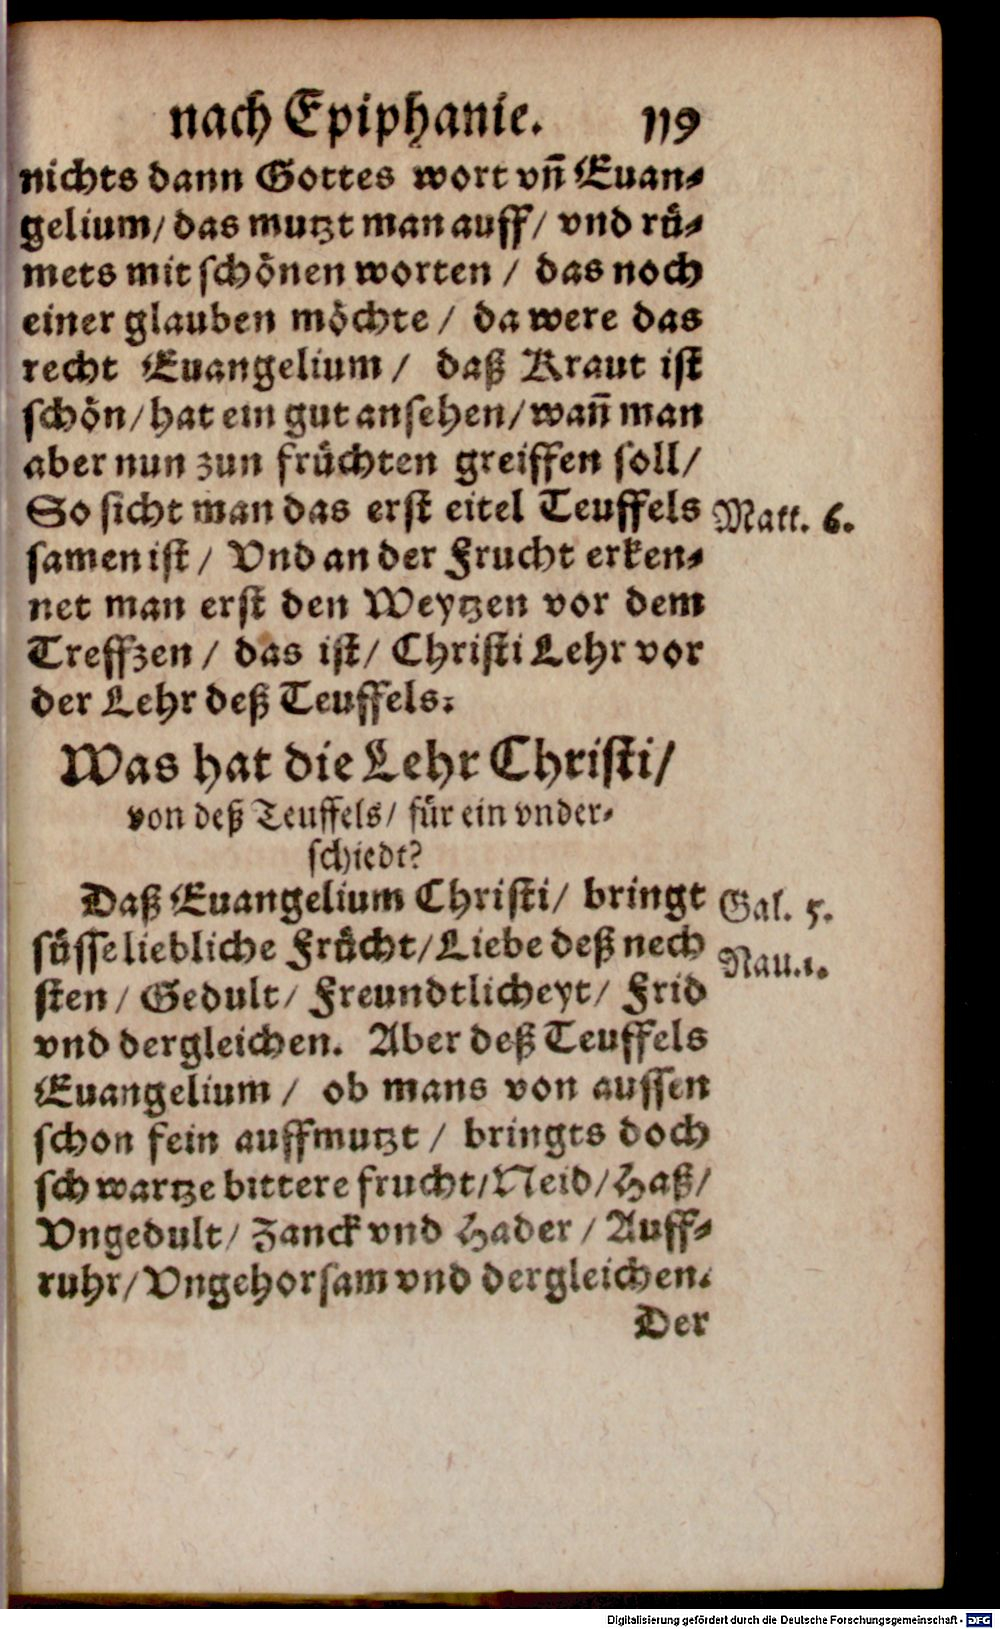 nach Epiphanie. 119
nichts dann Gottes wort vñ Euan-
gelium/ das mutzt man auff/ vnd rü-
mets mit schönen worten / das noch
einer glauben möchte / da were das
recht Euangelium / daß Kraut ist
schön/ hat ein gut ansehen/ wañ man
aber nun zun früchten greiffen soll/
So sicht man das erst eitel Teuffels Matt. 6.
samen ist / Vnd an der Frucht erken-
net man erst den Weytzen vor dem
Treffzen / das ist/ Christi Lehr vor
der Lehr deß Teuffels.
Was hat die Lehr Christi/
von deß Teuffels/ für ein vnder-
schiedt?
Daß Euangelium Christi/ bringt Gal. 5.
süsse liebliche Frücht/ Liebe deß nech Nau. 1.
sten / Gedult/ Freundtlicheyt/ Frid
vnd dergleichen. Aber deß Teuffels
Euangelium / ob mans von aussen
schon fein auffmutzt / bringts doch
schwartze bittere frucht/ Neid/ Haß/
Vngedult/ Zanck vnd Hader / Auff-
ruhr/ Vngehorsam vnd dergleichen.
Der
Digitalisierung gefördert durch die Deutsche Forschungsgemeinschaft - DFG